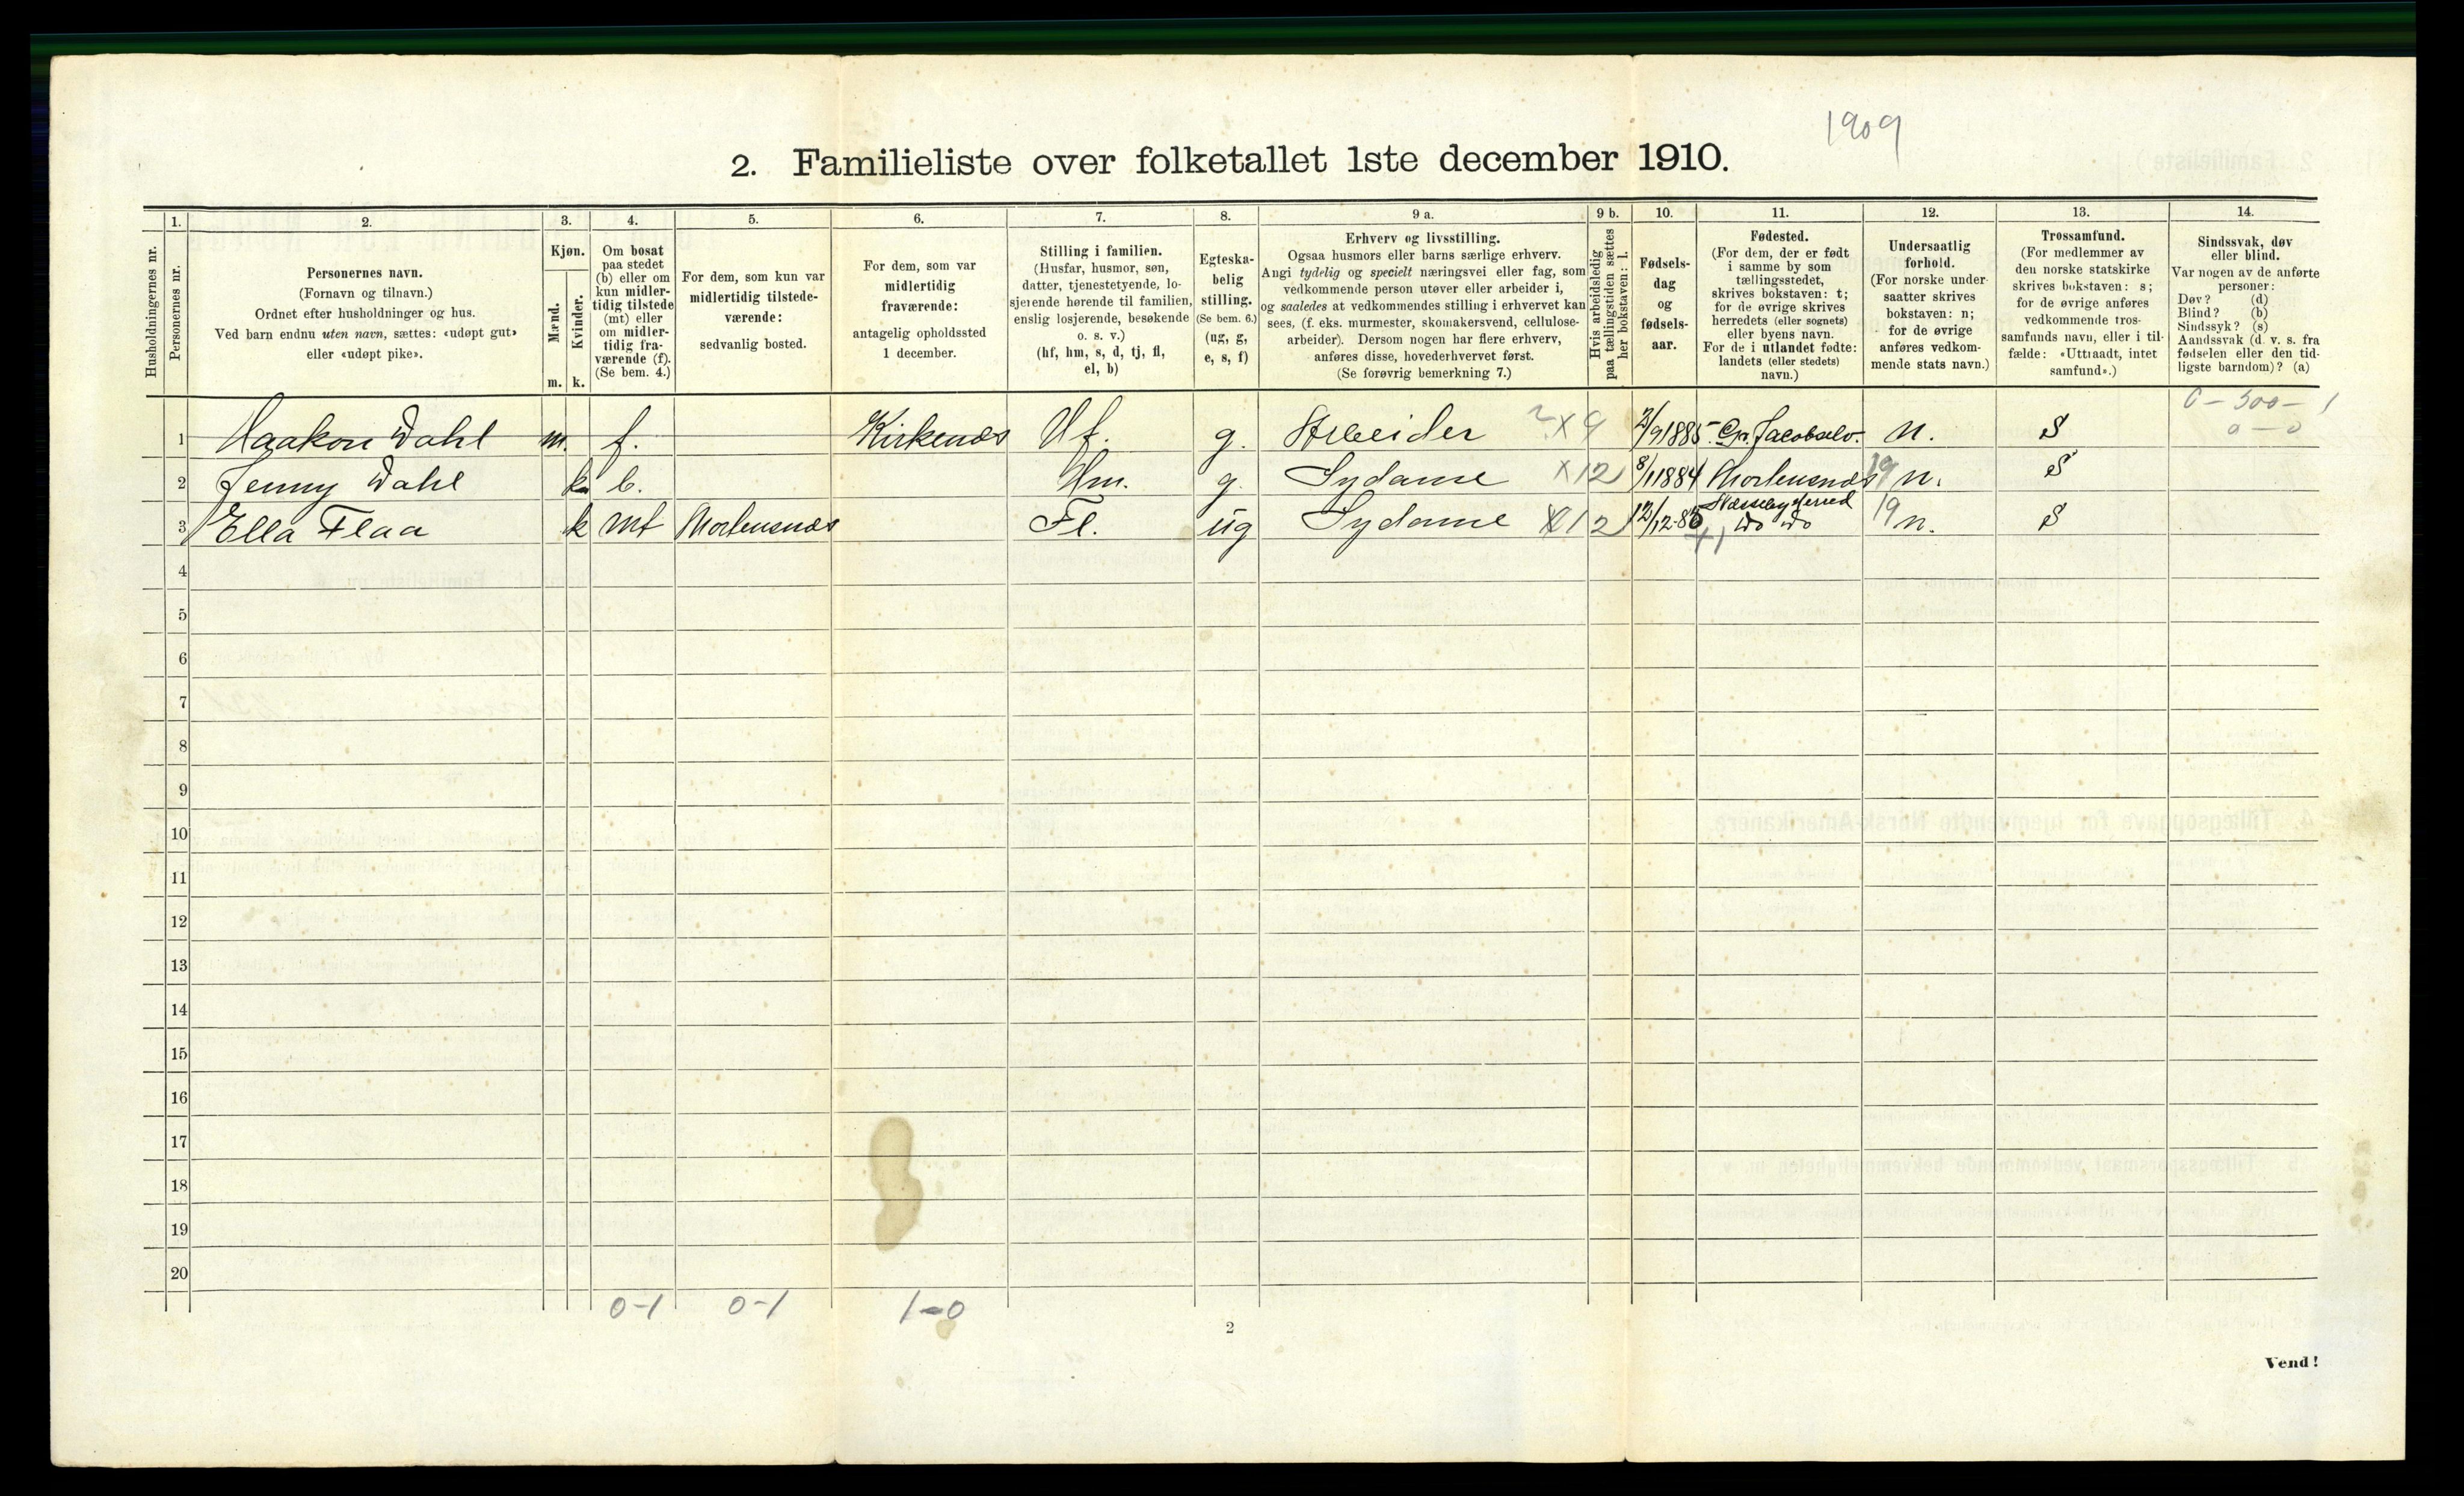 1909
2. Familieliste over folketallet 1ste december 1910.
Husholdningernes nr.
1.
Personernes nr.
2.
Personernes navn.
(Fornavn og tilnavn.)
Ordnet efter husholdninger og hus.
Ved barn endnu uten navn, sættes: «udøpt gut»
eller «udøpt pike».
3.
Kjøn.
Mænd.
Kvinder.
m. k.
4.
Om bosat
paa stedet
(b) eller om
kun midler-
tidig tilstede
(mt) eller
om midler-
tidig fra-
værende (f).
(Se bem. 4.)
5.
For dem, som kun var
midlertidig tilstede-
værende:
sedvanlig bosted.
6.
For dem, som var
midlertidig
fraværende:
antagelig opholdssted
1 december.
7.
Stilling i familien.
(Husfar, husmor, søn,
datter, tjenestetyende, lo-
sjerende hørende til familien,
enslig losjerende, besøkende
o. s. v.)
(hf, hm, s, d, tj, fl,
el, b)
8.
Egteska-
belig
stilling.
(Se bem. 6.)
(ug, g,
e, s, f)
9 a.
Erhverv og livsstilling.
Ogsaa husmors eller barns særlige erhverv.
Angi tydelig og specielt næringsvei eller fag, som
vedkommende person utøver eller arbeider i,
og saaledes at vedkommendes stilling i erhvervet kan
sees, (f. eks. murmester, skomakersvend, cellulose-
arbeider). Dersom nogen har flere erhverv,
anføres disse, hovederhvervet først.
(Se forøvrig bemerkning 7.)
9 b.
Hvis arbeidsledig
paa tællingstiden sættes
her bokstaven: l.
10.
Fødsels-
dag
og
fødsels-
aar.
11.
Fødested.
(For dem, der er født
i samme by som
tællingsstedet,
skrives bokstaven: t;
for de øvrige skrives
herredets (eller sognets)
eller byens navn.
For de i utlandet fødte:
landets (eller stedets)
navn.)
12.
Undersaatlig
forhold.
(For norske under-
saatter skrives
bokstaven: n;
for de øvrige
anføres vedkom-
mende stats navn.)
13.
Trossamfund.
(For medlemmer av
den norske statskirke
skrives bokstaven: s;
for de øvrige anføres
vedkommende tros-
samfunds navn, eller i til-
fælde: «Uttraadt, intet
samfund».)
14.
Sindssvak, døv
eller blind.
Var nogen av de anførte
personer:
Døv? (d)
Blind? (b)
Sindssyk? (s)
Aandssvak (d. v. s. fra
fødselen eller den tid-
ligste barndom)? (a)
0 - 300 - 1
0 - 0
1 Haakon Dahl m. f. Kirkenæs Hf. g. Arbeider X 9 2/9 1885 Gr. Jacobselv. n. S
2 Jenny Dahl k b. Hm. g. Sydame X 12 8/1 1884 Mortensnæs 19 n. S
Næsseby herred
3 Ella Flaa k mt Mortensnæs Fl. ug Sydame X 12 12/12-85 do do 19 n. S
4
5
6
7
8
9
10
11
12
13
14
15
16
17
18
19
20
0-1 0-1 1-0
2
Vend!